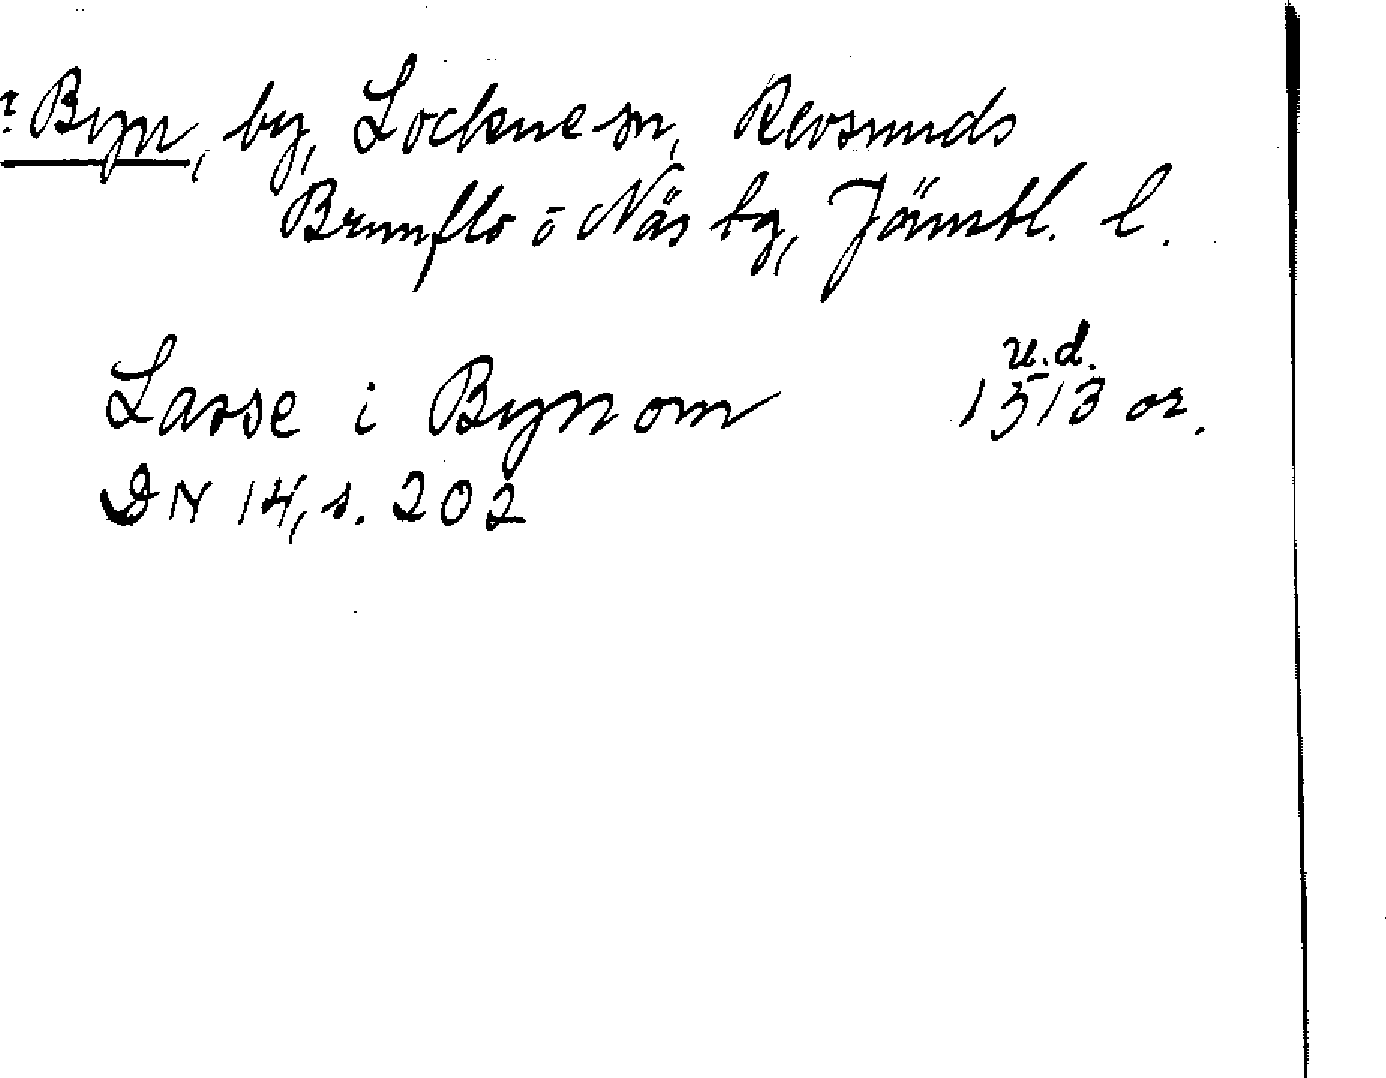 ? Byn, by, Lockne sn, Revsunds
Brunflo o Näs tg, Jämtl. l.
u.d.
Lasse i Bynom 1513 or.
DN 14, s. 202